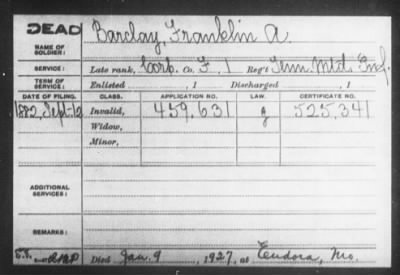 DEAD
NAME OF SOLDIER: Barclay, Franklin A.
SERVICE: Late rank, Corp. Co. F, 1 Reg't Tenn. Mtd. Inf.
TERM OF SERVICE: Enlisted , 1 Discharged , 1
DATE OF FILING. CLASS. APPLICATION NO. LAW. CERTIFICATE NO.
1882, Sept. 12 Invalid, 459,631 G 525,341
Widow,
Minor,
ADDITIONAL SERVICES:
REMARKS:
Died Jan. 9, 1927, at Eudora, Mo.